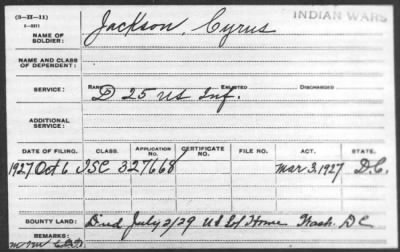 (3-II-11)
INDIAN WARS
NAME OF SOLDIER: Jackson, Cyrus
NAME AND CLASS OF DEPENDENT:
SERVICE: RANK ENLISTED DISCHARGED
D 25 US Inf.
ADDITIONAL SERVICE:
DATE OF FILING. CLASS. APPLICATION NO. CERTIFICATE NO. FILE NO. ACT. STATE.
1927 Oct 6 ISC 327668 Mar 3, 1927 D.C.
BOUNTY LAND: Died July 2/29 US Sol Home Wash. DC
REMARKS: